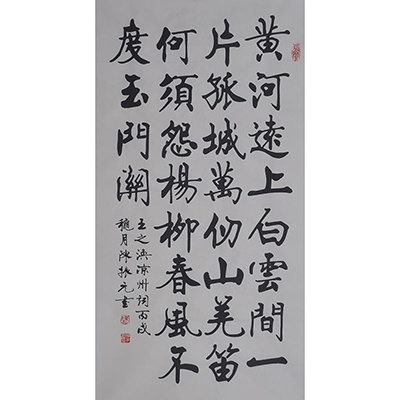 黄河遠上白雲間一
片孤城萬仞山羌笛
何須怨楊柳春風不
度玉門關
王之渙凉州詞丙戌
穐月陳振元書